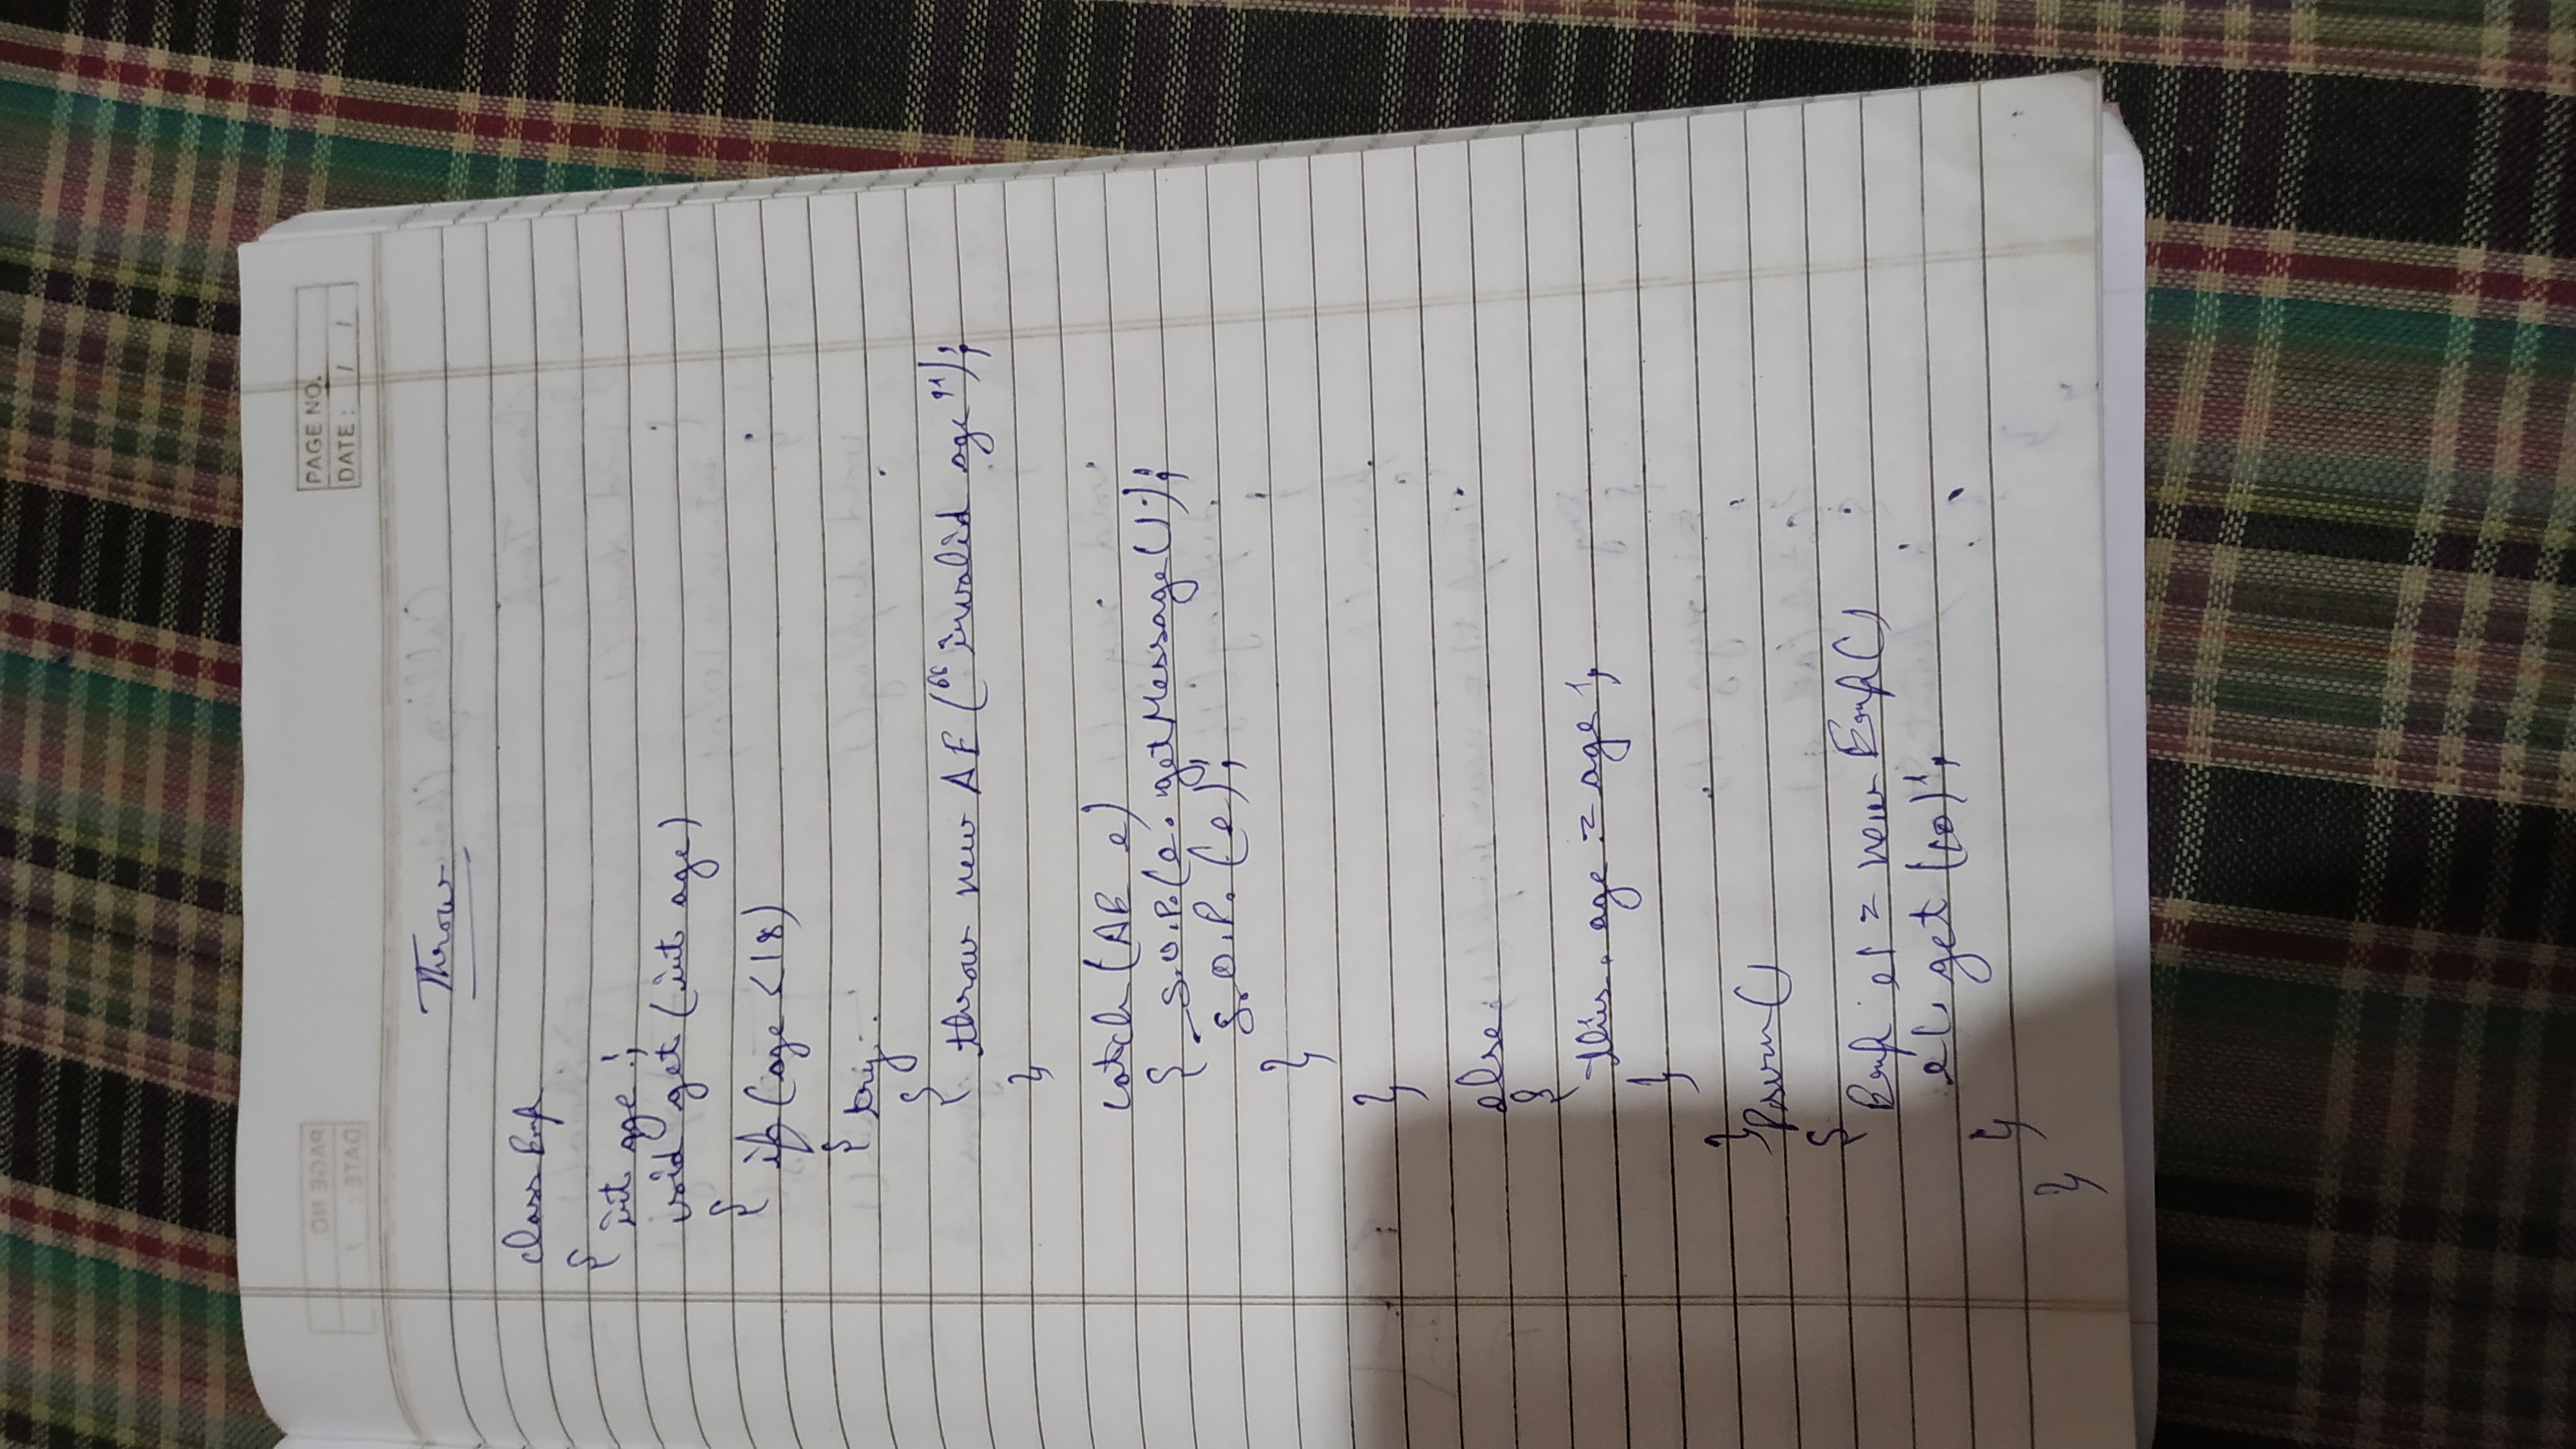 PAGE NO.
DATE : / /
Throw
class Emp
{
int age ;
void get (int age)
{
if (age <18)
{ try
{
throw new AE ("invalid age");
}
catch (AE e)
{ S.O.P. (e. getMessage ());
S.O.P. (e);
}
}
else
{
this. age = age ;
}
}
Psvm ()
{
Emp e1 = new Emp ()
e1. get (10) ;
}
}